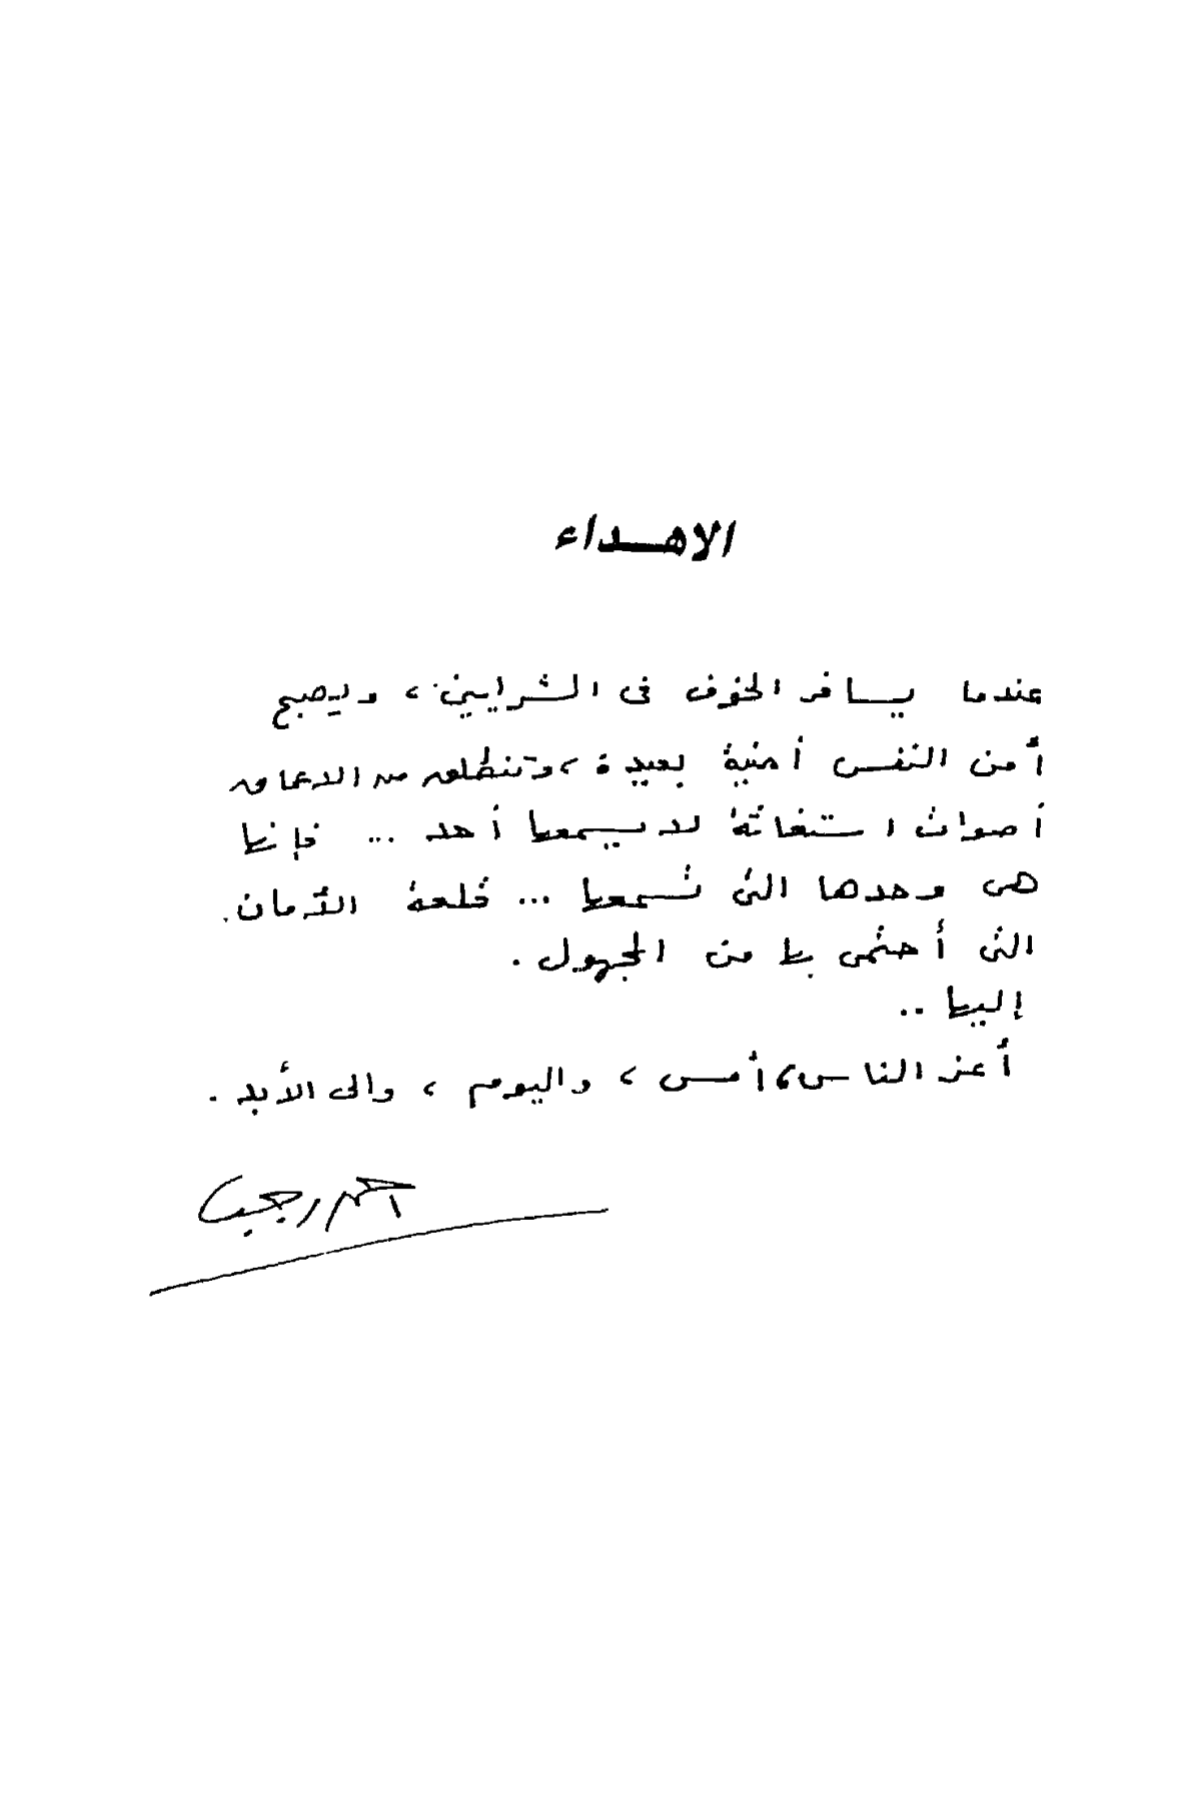 الاهداء
عندما يسافر الخوف فى الشرايين ، ويصبح
أمن النفس أمنية بعيدة ، وتنطلق من الاعماق
أصوات استغاثة لا يسمعها أحد ... فإنها
هى وحدها التى تسمعها ... قلعة الأمان
التى أحتمى بها من المجهول .
إليها ..
أعز الناس ، أمس ، واليوم ، والى الأبد .
احمد رجب